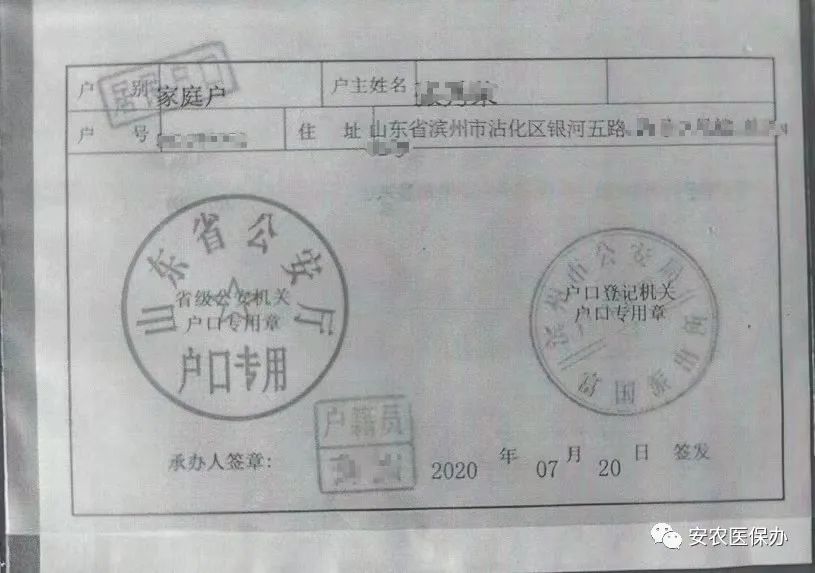 户 别 家庭户 户主姓名
居民户口
户 号 住 址 山东省滨州市沾化区银河五路
山东省公安厅
省级公安机关
户口专用章
户口专用
滨州市公安局
户口登记机关
户口专用章
富国派出所
户籍员
承办人签章:
2020 年 07 月 20 日 签发
安农医保办